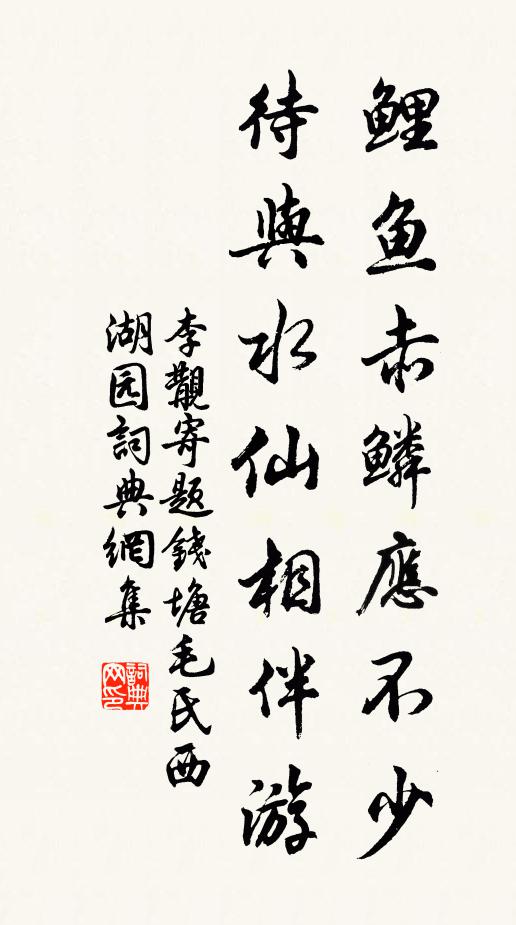 鲤鱼赤鳞應不少
待與水仙相伴游
李覯寄题錢塘毛氏西
湖园詞典網集
詞典网印